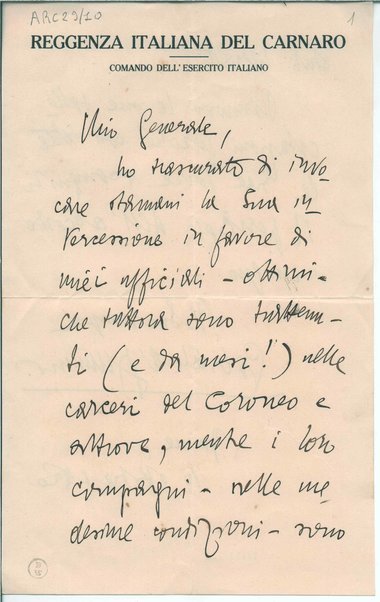 ARC29/10
1
REGGENZA ITALIANA DEL CARNARO
COMANDO DELL'ESERCITO ITALIANO
Mio Generale,
ho trascurato di invo-
care stamani la Sua in-
tercessione in favore di
miei ufficiali - ottimi -
che tuttora sono trattenu-
ti (e da mesi!) nelle
carceri del Coroneo e
altrove, mentre i loro
compagni - nelle me
desime condizioni - sono